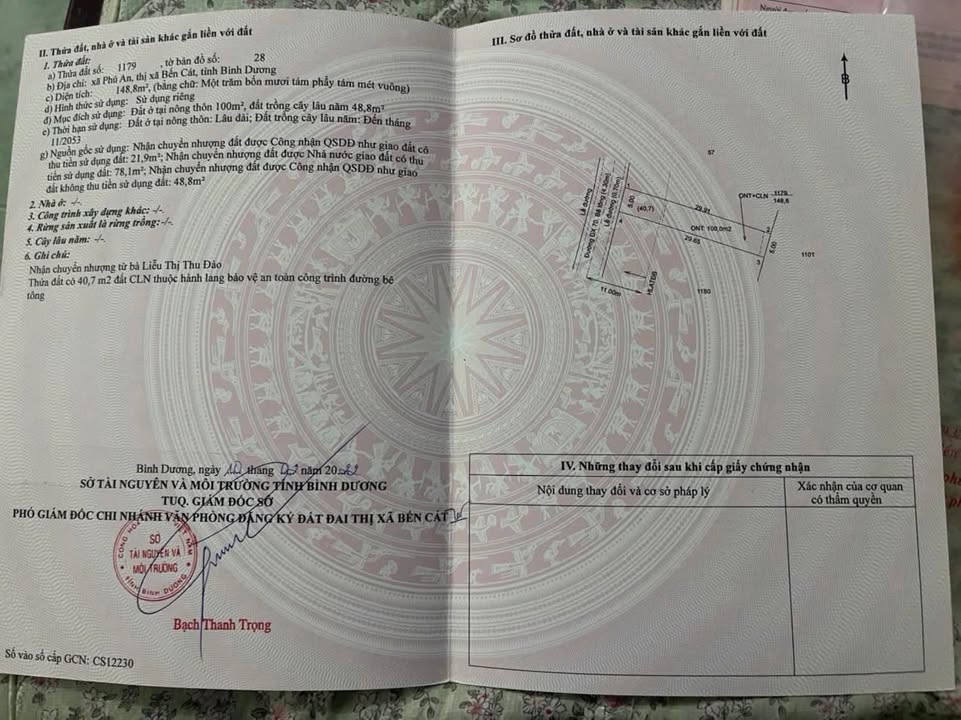 II. Thửa đất, nhà ở và tài sản khác gắn liền với đất
1. Thửa đất:
a) Thửa đất số: 1179 , tờ bản đồ số: 28
b) Địa chỉ: xã Phú An, thị xã Bến Cát, tỉnh Bình Dương
c) Diện tích: 148,8m², (bằng chữ: Một trăm bốn mươi tám phẩy tám mét vuông)
d) Hình thức sử dụng: Sử dụng riêng
đ) Mục đích sử dụng: Đất ở tại nông thôn 100m², đất trồng cây lâu năm 48,8m²
e) Thời hạn sử dụng: Đất ở tại nông thôn: Lâu dài; Đất trồng cây lâu năm: Đến tháng
11/2053
g) Nguồn gốc sử dụng: Nhận chuyển nhượng đất được Công nhận QSDĐ như giao đất có
thu tiền sử dụng đất: 21,9m²; Nhận chuyển nhượng đất được Nhà nước giao đất có thu
tiền sử dụng đất: 78,1m²; Nhận chuyển nhượng đất được Công nhận QSDĐ như giao
đất không thu tiền sử dụng đất: 48,8m²
2. Nhà ở: -/-.
3. Công trình xây dựng khác: -/-.
4. Rừng sản xuất là rừng trồng: -/-.
5. Cây lâu năm: -/-.
6. Ghi chú:
Nhận chuyển nhượng từ bà Liễu Thị Thu Đào
Thửa đất có 40,7 m2 đất CLN thuộc hành lang bảo vệ an toàn công trình đường bê
tông
Bình Dương, ngày 10 tháng 02 năm 2022
SỞ TÀI NGUYÊN VÀ MÔI TRƯỜNG TỈNH BÌNH DƯƠNG
TUQ. GIÁM ĐỐC SỞ
PHÓ GIÁM ĐỐC CHI NHÁNH VĂN PHÒNG ĐĂNG KÝ ĐẤT ĐAI THỊ XÃ BẾN CÁT
SỞ
TÀI NGUYÊN VÀ
MÔI TRƯỜNG
TỈNH BÌNH DƯƠNG
Bạch Thanh Trọng
Số vào sổ cấp GCN: CS12230
III. Sơ đồ thửa đất, nhà ở và tài sản khác gắn liền với đất
B
67
Lề đường
Đường ĐX 70, Bê tông (4.30m)
Lề đường (0.70m)
5.00
(40,7)
29.91
ONT+CLN 1179
148,8
ONT: 100,0m2
29.65
5.00
1101
11.00m
HLATĐB
1180
IV. Những thay đổi sau khi cấp giấy chứng nhận
Nội dung thay đổi và cơ sở pháp lý
Xác nhận của cơ quan
có thẩm quyền